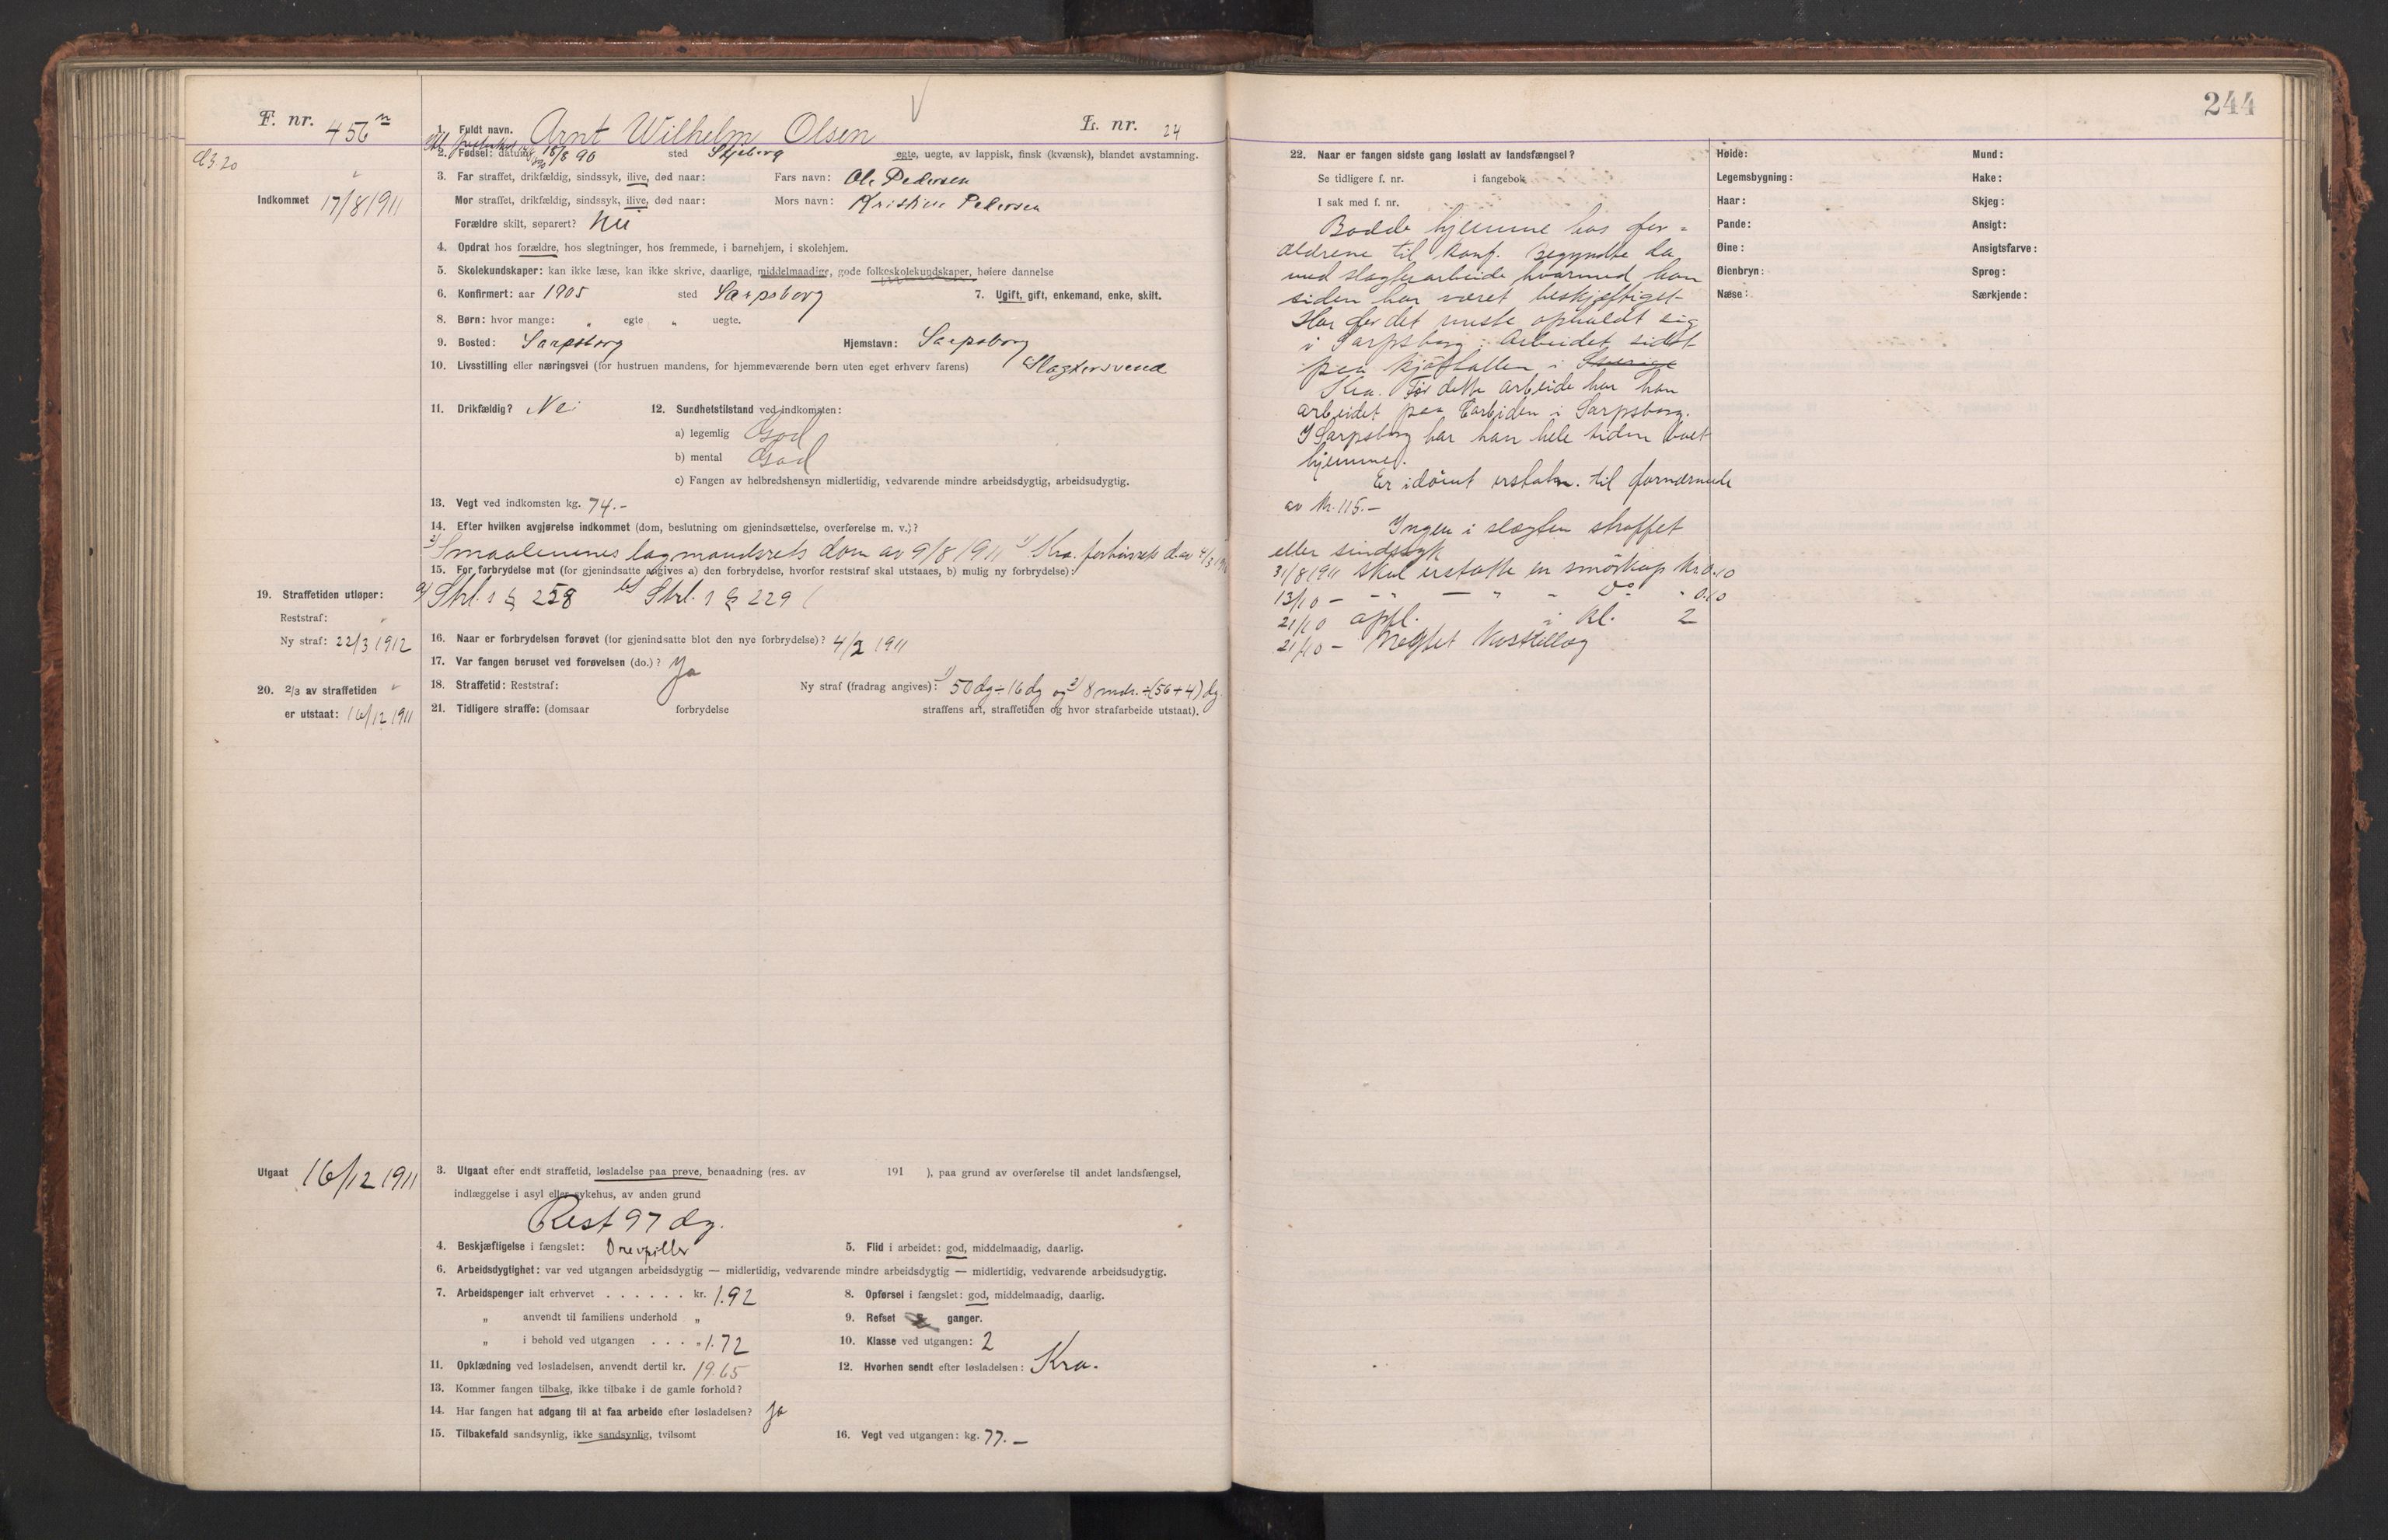 244
F. nr. 456
1. Fuldt navn. Arnt Wilhelm Olsen L. nr. 24
2. Fødsel: datum 18/8 90 sted Skjeberg egte, uegte, av lappisk, finsk (kvænsk), blandet avstamning.
Indkommet 17/8 1911
3. Far straffet, drikfældig, sindssyk, ilive, død naar: Fars navn: Ole Pedersen
Mor straffet, drikfældig, sindssyk, ilive, død naar: Mors navn: Kristine Pedersen
Forældre skilt, separert? Nei
4. Opdrat hos forældre, hos slegtninger, hos fremmede, i barnehjem, i skolehjem.
5. Skolekundskaper: kan ikke læse, kan ikke skrive, daarlige, middelmaadige, gode folkeskolekundskaper, høiere dannelse
6. Konfirmert: aar 1905 sted Sarpsborg 7. Ugift, gift, enkemand, enke, skilt.
8. Børn: hvor mange: „ egte „ uegte.
9. Bosted: Sarpsborg Hjemstavn: Sarpsborg
10. Livsstilling eller næringsvei (for hustruen mandens, for hjemmeværende børn uten eget erhverv farens) Slagtersvend
11. Drikfældig? Nei 12. Sundhetstilstand ved indkomsten:
a) legemlig God
b) mental God
c) Fangen av helbredshensyn midlertidig, vedvarende mindre arbeidsdygtig, arbeidsudygtig.
13. Vegt ved indkomsten kg. 74.-
14. Efter hvilken avgjørelse indkommet (dom, beslutning om gjenindsættelse, overførelse m. v.)?
2) Smaalenenes lagmandsrets dom av 9/8 1911 1) Kra. forhørsrets d. av 4/3 1911
15. For forbrydelse mot (for gjenindsatte angives a) den forbrydelse, hvorfor reststraf skal utstaaes, b) mulig ny forbrydelse):
a) Strl. s § 258 b) Strl. s § 229
19. Straffetiden utløper:
Reststraf: „
Ny straf: 22/3 1912
16. Naar er forbrydelsen forøvet (for gjenindsatte blot den nye forbrydelse)? 4/2 1911
17. Var fangen beruset ved forøvelsen (do.)? Ja
20. 2/3 av straffetiden
er utstaat: 16/12 1911
18. Straffetid: Reststraf: Ny straf (fradrag angives): 1) 50 dg ÷ 16 dg og 2) 8 mdr. ÷ (56+4) dg.
21. Tidligere straffe: (domsaar forbrydelse straffens art, straffetiden og hvor strafarbeide utstaat).
Utgaat 16/12 1911
3. Utgaat efter endt straffetid, løsladelse paa prøve, benaadning (res. av 191 ), paa grund av overførelse til andet landsfængsel,
indlæggelse i asyl eller sykehus, av anden grund
Rest 97 dg.
4. Beskjæftigelse i fængslet: Drevpiller 5. Flid i arbeidet: god, middelmaadig, daarlig.
6. Arbeidsdygtighet: var ved utgangen arbeidsdygtig — midlertidig, vedvarende mindre arbeidsdygtig — midlertidig, vedvarende arbeidsudygtig.
7. Arbeidspenger ialt erhvervet . . . . . . kr. 1.92 8. Opførsel i fængslet: god, middelmaadig, daarlig.
„ anvendt til familiens underhold „ 9. Refset ganger.
„ i behold ved utgangen . . . „ 1.72 10. Klasse ved utgangen: 2
11. Opklædning ved løsladelsen, anvendt dertil kr. 19.65 12. Hvorhen sendt efter løsladelsen: Kra.
13. Kommer fangen tilbake, ikke tilbake i de gamle forhold?
14. Har fangen hat adgang til at faa arbeide efter løsladelsen? Ja
15. Tilbakefald sandsynlig, ikke sandsynlig, tvilsomt 16. Vegt ved utgangen: kg. 77.—
22. Naar er fangen sidste gang løslatt av landsfængsel?
Se tidligere f. nr. i fangebok
I sak med f. nr.
Bodde hjemme hos for=
ældrene til konf. Begyndte da
med slagterarbeide hvormed han
siden har været beskjæftiget
Har for det meste opholdt sig
i Sarpsborg. Arbeidet sidst
paa kjøthallen i Sverige
Kra. Før dette arbeide har han
arbeidet paa Carbiden i Sarpsborg.
I Sarpsborg har han hele tiden boet
hjemme.
Er idømt erstatn. til fornærmede
av kr. 115.-
Ingen i slægten straffet
eller sindssyk
31/8 1911 skal erstatte en smörkop kr. 0.10
13/10 - „ „ — „ „ do „ 0.10
21/10 opfl. i kl. 2
21/10 - Negtet kosttillæg
Høide: Mund:
Legemsbygning: Hake:
Haar: Skjeg:
Pande: Ansigt:
Øine: Ansigtsfarve:
Øienbryn: Sprog:
Næse: Særkjende: